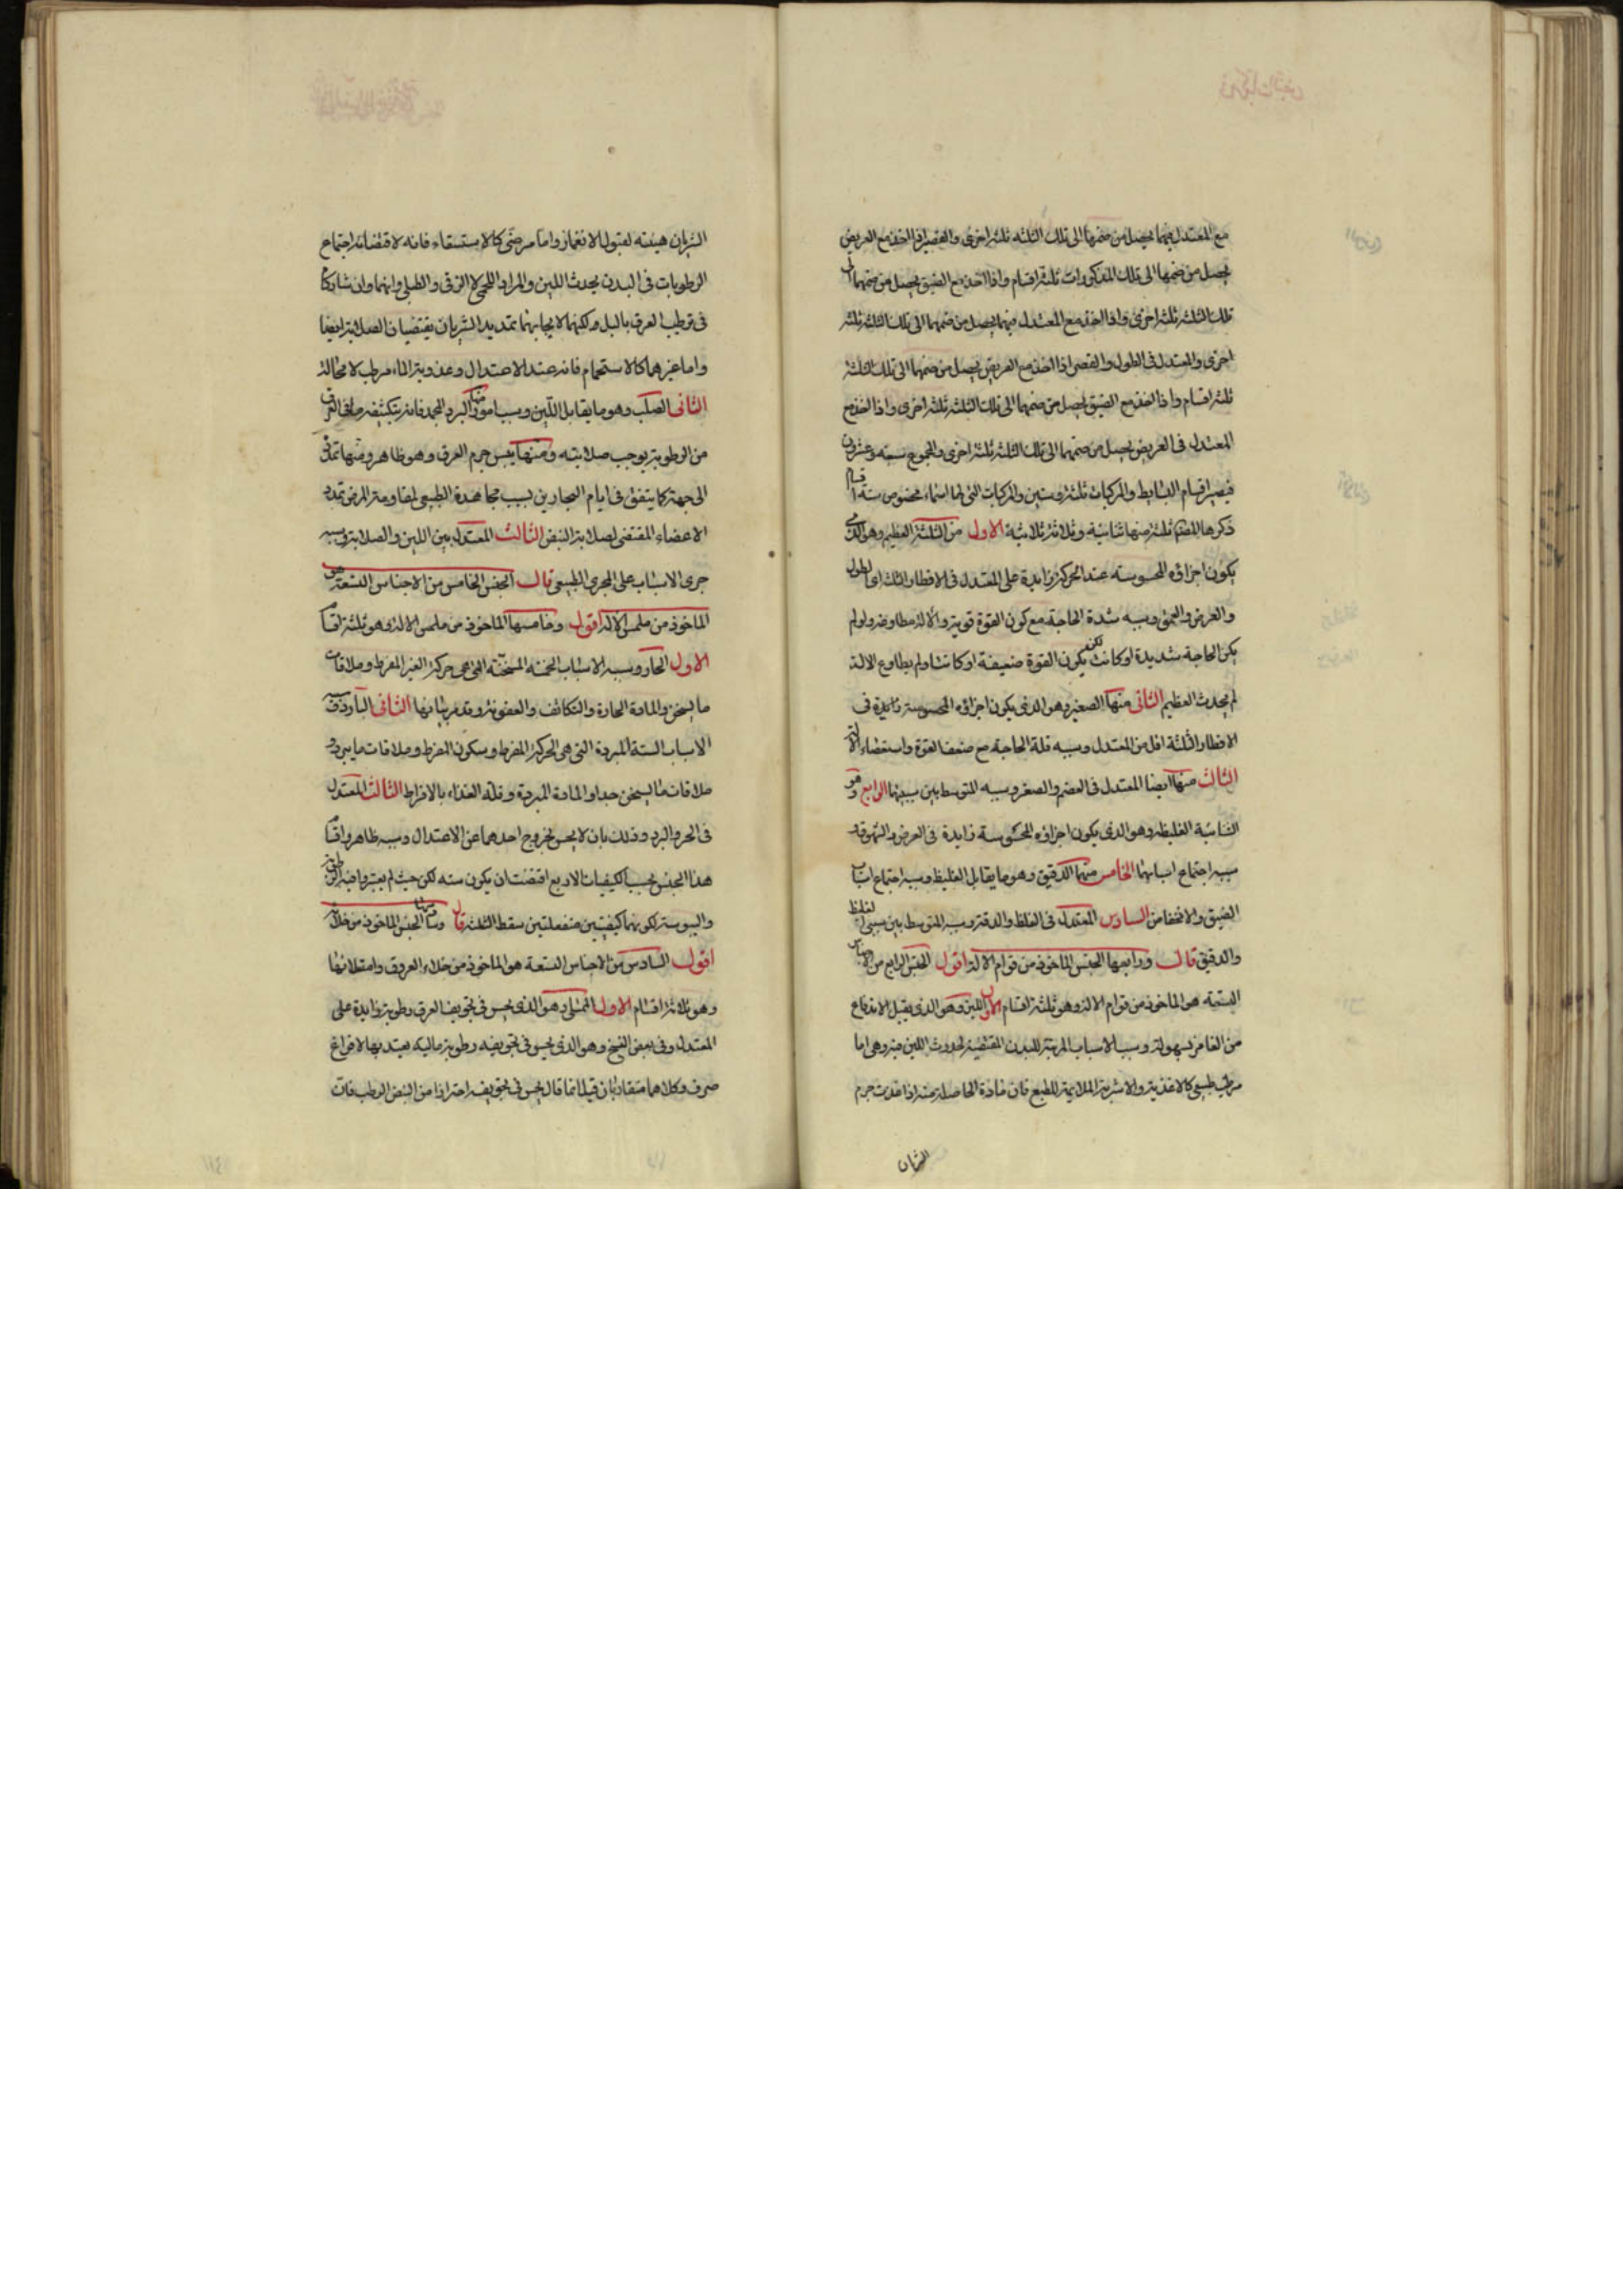 مع المعتدل فيهما يحصل من ضمها الى تلك الثلثه ثلثة اخرى والقصير اذا اخذ مع العريض
يحصل من ضمها الى تلك المذكورات ثلثة اقسام واذا اخذ مع الضيق يحصل من ضمهما الى
تلك الثلثه ثلثه اخرى واذا اخذ مع المعتدل فيهما يحصل من ضمهما الى تلك الثلثة ثلثه
اخرى والمعتدل فى الطول والقصر اذا اخذ مع العريض يحصل من ضمهما الى تلك الثلثة
ثلثة اقسام واذا اخذ مع الضيق يحصل من ضمهما الى تلك الثلثه ثلثة اخرى واذا اخذ مع
المعتدل فى العريض يحصل من ضمهما الى تلك الثلثة ثلثة اخرى والمجموع سبعة وعشرون
فيصير اقسام البسايط والمركبات ثلثة وستين والمركبات التى لها اسماء مخصوص ستة اقسام
ذكرها المصنف ثلثة منها ثنائية وثلاثة ثلاثية الاول من الثلثة العظيم وهو الذى
يكون اجزاؤه المحسوسة عند الحركة زايدة على المعتدل فى الاقطار الثلثة اى الطول
والعرض والعمق وسببه شدة الحاجة مع كون القوة قوية والالة مطاوعة ولو لم
يكن الحاجة شديدة او كانت لكن يكون القوة ضعيفة او كانتا ولم يطاوع الالة
لم يحدث العظيم الثانى منها الصغير وهو الذى يكون اجزاؤه المحسوسة زايدة فى
الاقطار الثلثة اقل من المعتدل وسببه قلة الحاجة مع ضعف القوة واستعصاء الالة
الثالث منها ايضا المعتدل فى العظم والصغر وسببه المتوسط بين سببيهما الرابع وهو
الثنائية الغليظ وهو الذى يكون اجزاؤه المحسوسة زايدة فى العرض والشهوق و
سببه اجتماع اسبابهما الخامس منها الدقيق وهو ما يقابل الغليظ وسببه اجتماع اسباب
الضيق والانخفاض السادس المعتدل فى الغلظ والدقة وسببه المتوسط بين سببى الغليظ
والدقيق قال ورابعها الجنس الماخوذ من قوام الالة اقول الجنس الرابع من الاجناس
التسعة هو الماخوذ من قوام الالة وهو ثلثة اقسام الاول اللين وهو الذى يقبل الاندفاع
من الغامز بسهولة وسببه الاسباب المرطبة للبدن المقتضية لحدوث اللين فيه وهى اما
مرطب طبيعى كالاغذية والاشربة الملايمة للطبع فان مادة الحاصلة منه اذا غذت جرم
الشريان
الشريان هيئته لقبول الانغماز واما مرضى كالاستسقاء فانه لاقتضائه اجتماع
الرطوبات فى البدن يحدث اللين والمراد اللحمى لا الزقى والطبلى وانهما وان شاركا
فى ترطيب العرق بالبل ولكنهما لايجابهما تمديد الشريان يقتضيان الصلابة ايضا
واما غيرهما كالاستحمام فانه عند الاعتدال وعذوبة الماء مرطب لا محالة
الثانى الصلب وهو ما يقابل اللين وسببه امور منها البرد المجمد فانه بتكثيفه ما فى العرق
من الرطوبة يوجب صلابته ومنها يبس جرم العرق وهو ظاهر ومنها تمدد
الى جهة كما يتفق فى ايام البحارين بسبب مجاهدة الطبيعى لمقاومة المرض تمدد
الاعضاء المقتضى لصلابة النبض الثالث المعتدل بين اللين والصلابة وسببه
جرى الاسباب على المجرى الطبيعى قال الجنس الخامس من الاجناس التسعة هو
الماخوذ من ملمس الالة اقول وخامسها الماخوذ من ملمس الالة وهو ثلثة اقسام
الاول الحار وسببه الاسباب الخمسة المسخنة التى هى حركة الغير المفرط وملاقات
ما يسخن والمادة الحارة والتكاثف والعفونة وقد مر بيانها الثانى البارد وسببه
الاسباب الستة المبردة التى هى الحركة المفرط وسكون المفرط وملاقات ما يبرد و
ملاقات ما يسخن جدا والمادة المبردة وقلة الغذاء بالافراط الثالث المعتدل
فى الحر والبرد وذلك بان لا يحس بخروج احدهما عن الاعتدال وسببه ظاهر واقسام
هذا الجنس بحسب الكيفيات الاربع اقتضت ان يكون ستة لكن حيث لم يعتبروا فيه الرطوبة
واليبوسة لكونهما كيفيتين منفعلتين سقط الثلثة قال وسادسها الجنس الماخوذ من خلائه
اقول السادس من الاجناس التسعة هو الماخوذ من خلاء العروق وامتلائها
وهو ثلاثة اقسام الاول الممتلى وهو الذى يحس فى تجويف العرق رطوبة زايدة على
المعتدل وفى بعض النسخ وهو الذى يحس فى تجويفه رطوبة مالية يعتد بها لا فراغ
صرف وكلاهما متقاربان قيل انما قال يحس فى تجويفه احترازا من النبض الرطب فان